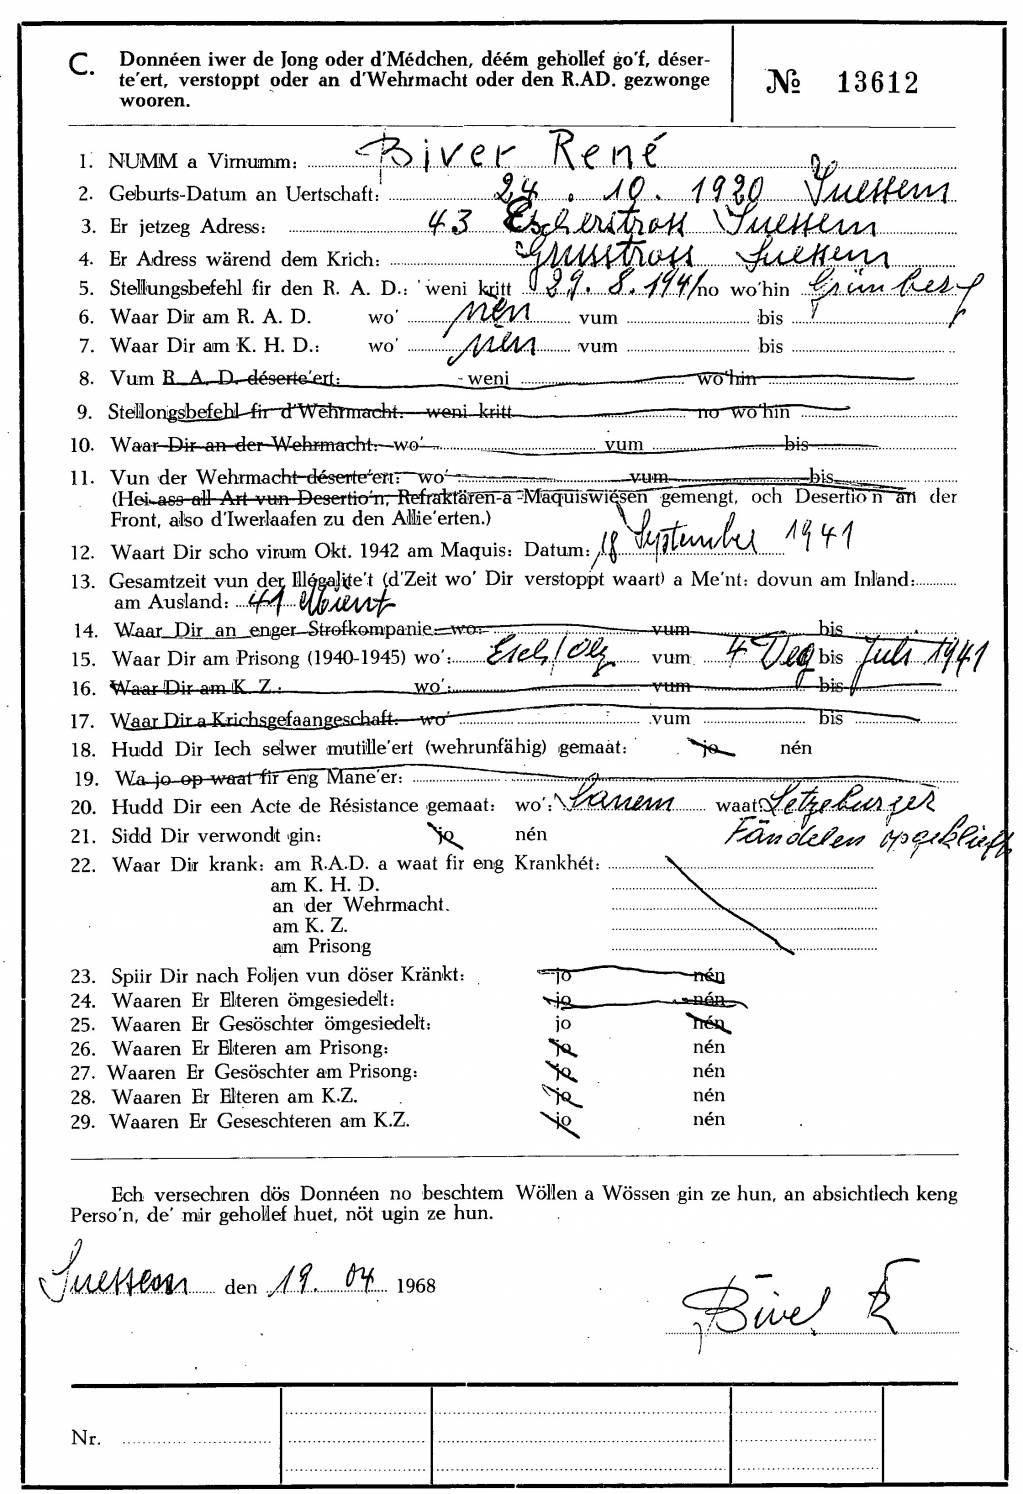 C. Donnéen iwer de Jong oder d'Médchen, déém gehollef go'f, déser-
te'ert, verstoppt oder an d'Wehrmacht oder den R.AD. gezwonge
wooren.
№ 13612
1. NUMM a Virnumm: Biver René
2. Geburts-Datum an Uertschaft: 24. 10. 1920 Suessem
3. Er jetzeg Adress: 43 Escherstross Suessem
4. Er Adress wärend dem Krich: Grusstross Suessem
5. Stellungsbefehl fir den R. A. D.: weni kritt 29. 8. 1941 no wo'hin Grünberg
6. Waar Dir am R. A. D. wo' nén vum bis
7. Waar Dir am K. H. D.: wo' nén vum bis
8. Vum R. A. D. déserte'ert: weni wo'hin
9. Stellongsbefehl fir d'Wehrmacht: weni kritt no wo'hin
10. Waar Dir an der Wehrmacht: wo' vum bis
11. Vun der Wehrmacht déserte'ert: wo' vum bis
(Hei ass all Art vun Desertio'n, Refraktären a Maquiswiesen gemengt, och Desertio'n an der
Front, also d'Iwerlaafen zu den Allie'erten.)
12. Waart Dir scho virum Okt. 1942 am Maquis: Datum: 18 September 1941
13. Gesamtzeit vun der Illégalite't (d'Zeit wo' Dir verstoppt waart) a Me'nt: dovun am Inland:
am Ausland: 41 Mount
14. Waar Dir an enger Strofkompanie: wo: vum bis
15. Waar Dir am Prisong (1940-1945) wo': Esch/Olz vum 4 Deg bis Juli 1941
16. Waar Dir am K. Z.: wo': vum bis
17. Waar Dir a Krichsgefaangeschaft: wo' vum bis
18. Hudd Dir Iech selwer mutille'ert (wehrunfähig) gemaat: jo nén
19. Wa jo op waat fir eng Mane'er:
20. Hudd Dir een Acte de Résistance gemaat: wo': Sanem waat: Letzeburger
Fändelen opgeklieft
21. Sidd Dir verwondt gin: jo nén
22. Waar Dir krank: am R.A.D. a waat fir eng Krankhét:
am K. H. D.
an der Wehrmacht.
am K. Z.
am Prisong
23. Spiir Dir nach Foljen vun döser Kränkt: jo nén
24. Waaren Er Elteren ömgesiedelt: jo nén
25. Waaren Er Gesöschter ömgesiedelt: jo nén
26. Waaren Er Elteren am Prisong: jo nén
27. Waaren Er Gesöschter am Prisong: jo nén
28. Waaren Er Elteren am K.Z. jo nén
29. Waaren Er Geseschteren am K.Z. jo nén
Ech versechren dös Donnéen no beschtem Wöllen a Wössen gin ze hun, an absichtlech keng
Perso'n, de' mir gehollef huet, nöt ugin ze hun.
Suessem den 19. 04 1968
Biver R
Nr.